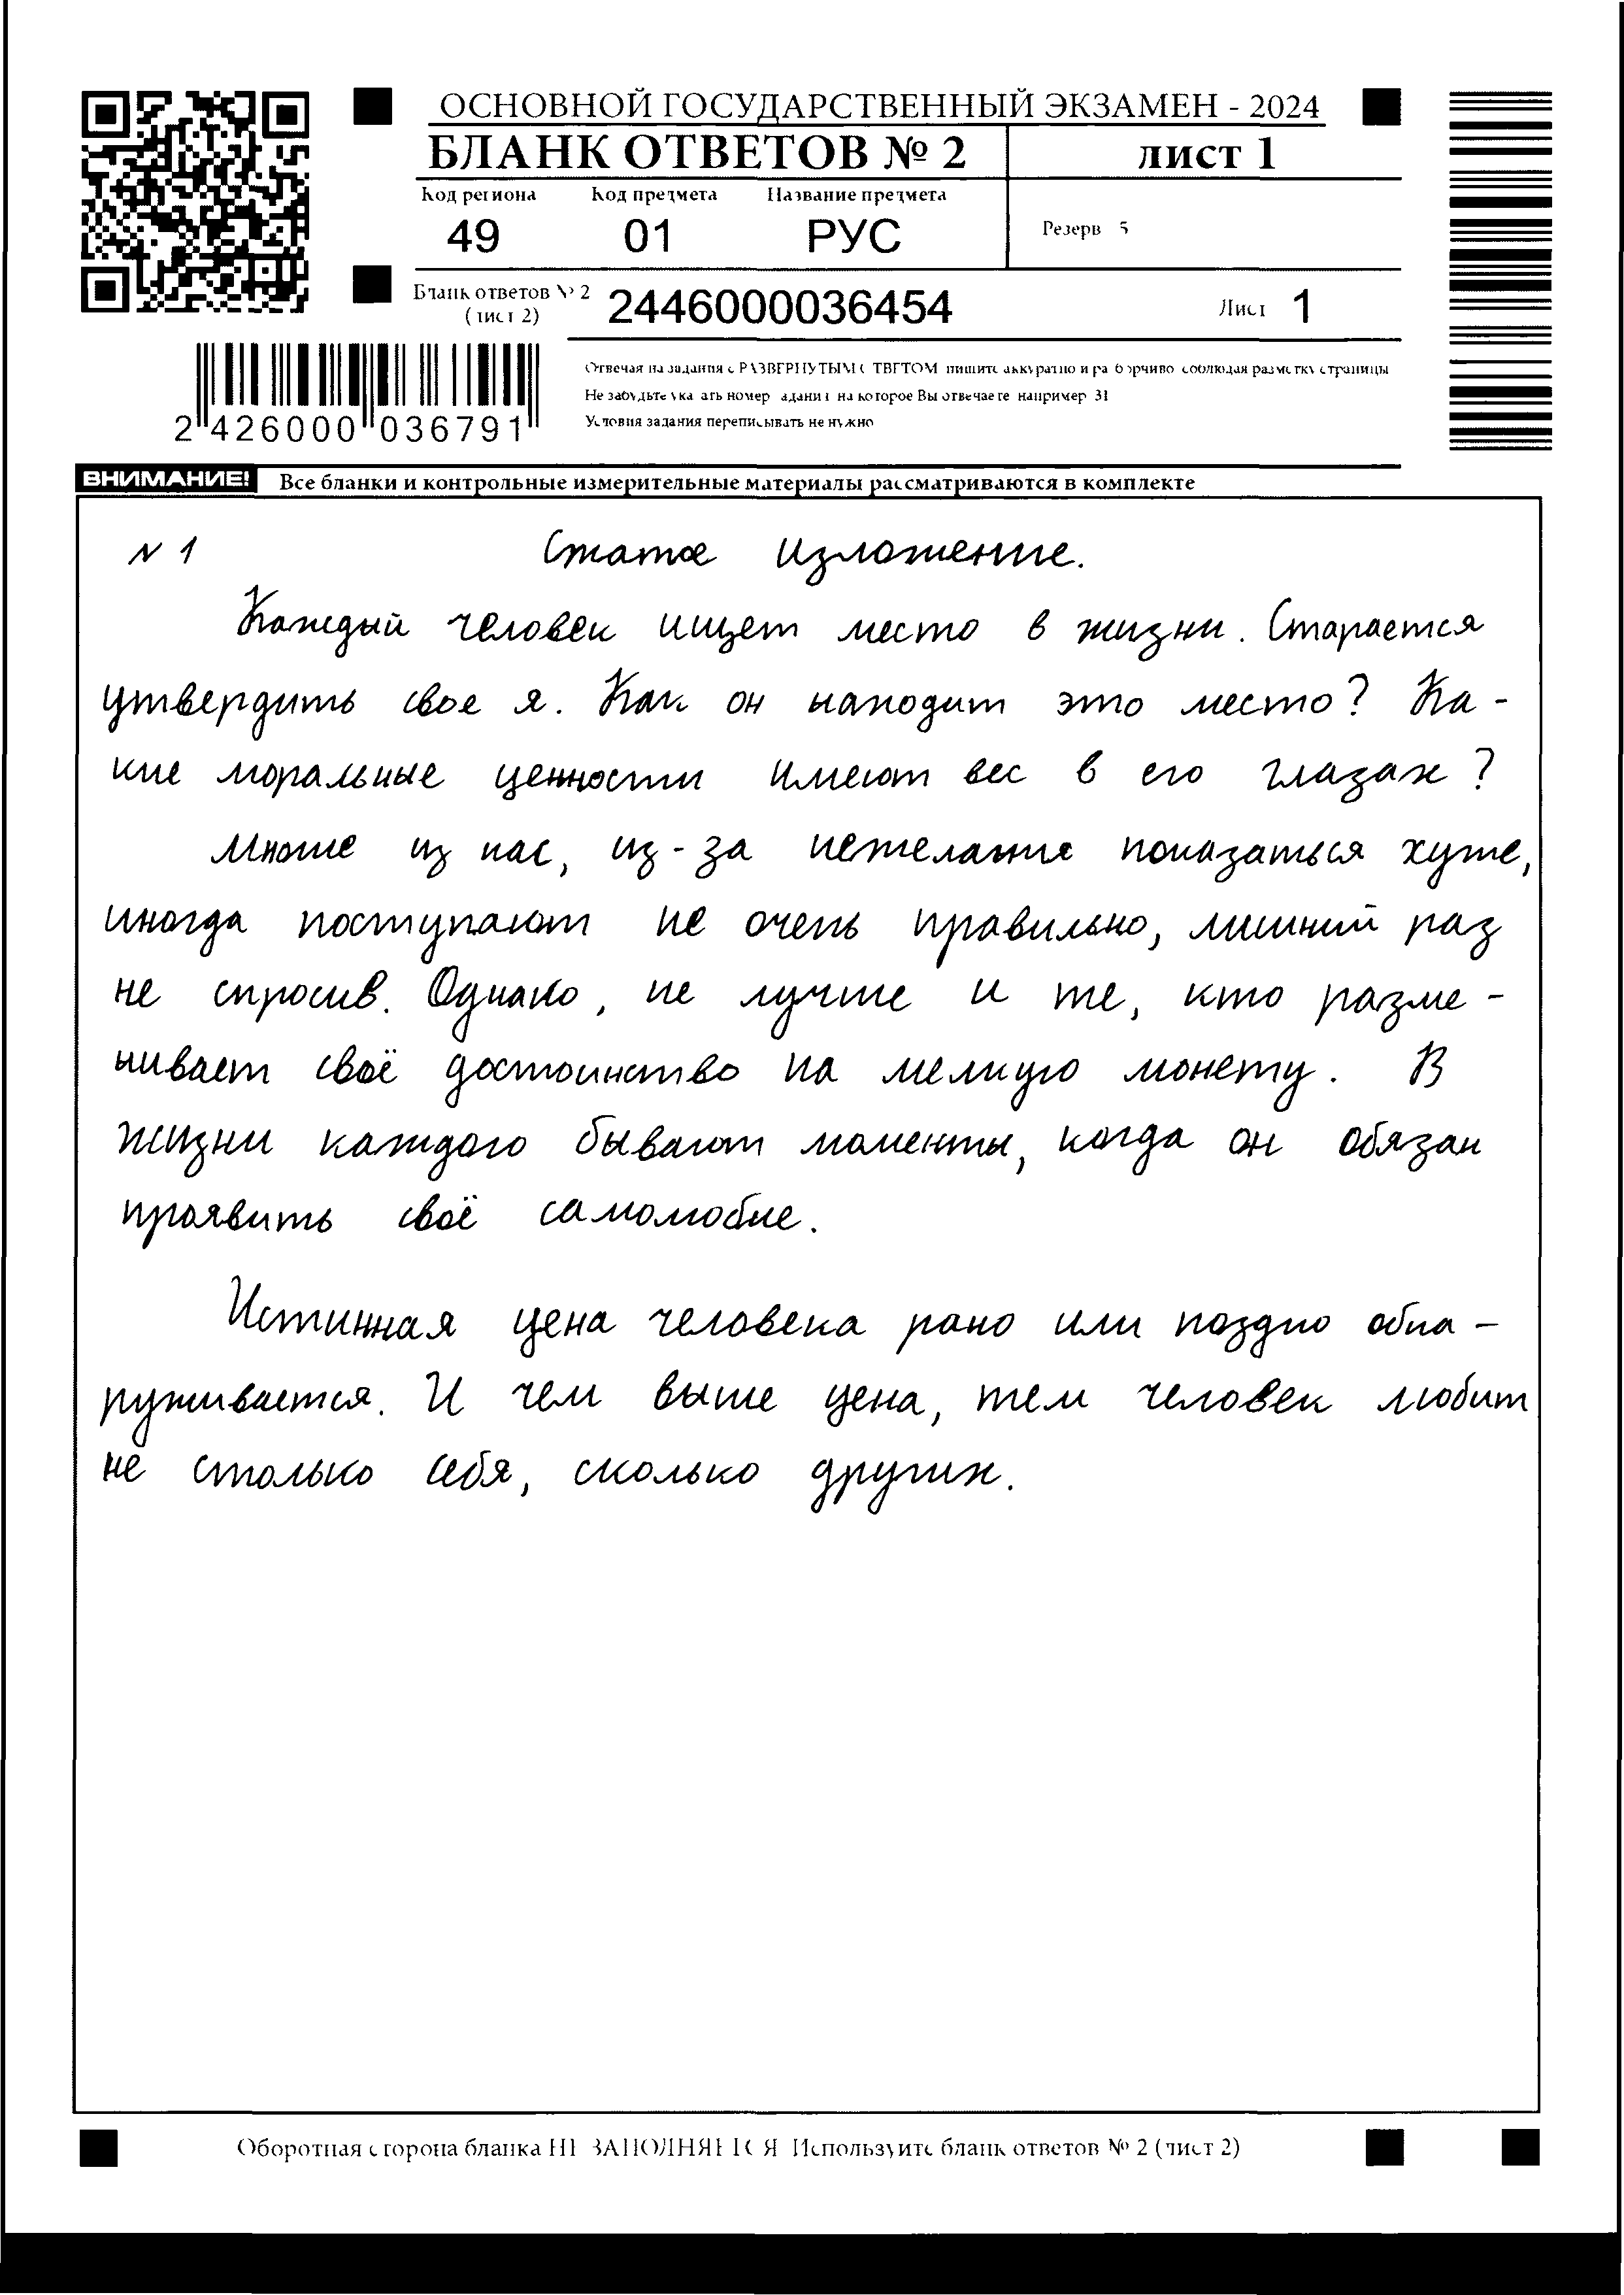 ОСНОВНОЙ ГОСУДАРСТВЕННЫЙ ЭКЗАМЕН - 2024
БЛАНК ОТВЕТОВ № 2
ЛИСТ 1
Код региона Код предмета Название предмета
49 01 РУС
Резерв 5
Бланк ответов № 2
(лист 2)
2446000036454
Лист 1
Отвечая на задания с РАЗВЕРНУТЫМ ОТВЕТОМ пишите аккуратно и разборчиво соблюдая разметку страницы
Не забудьте указать номер задания на которое Вы отвечаете например 31
Условия задания переписывать не нужно
2 426000 036791
ВНИМАНИЕ! Все бланки и контрольные измерительные материалы рассматриваются в комплекте
N 1 Сжатое изложение.
Каждый человек ищет место в жизни. Старается
утвердить свое я. Как он находит это место? Ка-
кие моральные ценности имеют вес в его глазах?
Многие из нас, из-за нежелания показаться хуже,
иногда поступают не очень правильно, лишний раз
не спросив. Однако, не лучше и те, кто разме-
нивает своё достоинство на мелкую монету. В
жизни каждого бывают моменты, когда он обязан
проявить своё самолюбие.
Истинная цена человека рано или поздно обна-
руживается. И чем выше цена, тем человек любит
не столько себя, сколько других.
Оборотная сторона бланка НЕ ЗАПОЛНЯЕТСЯ Используйте бланк ответов № 2 (лист 2)